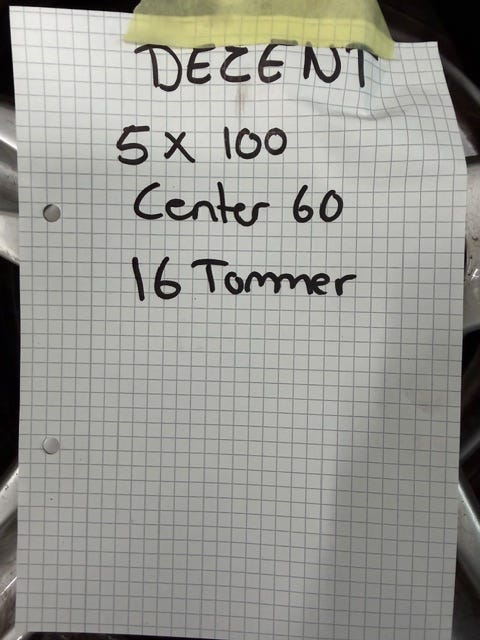 DEZENT
5 x 100
Center 60
16 Tommer